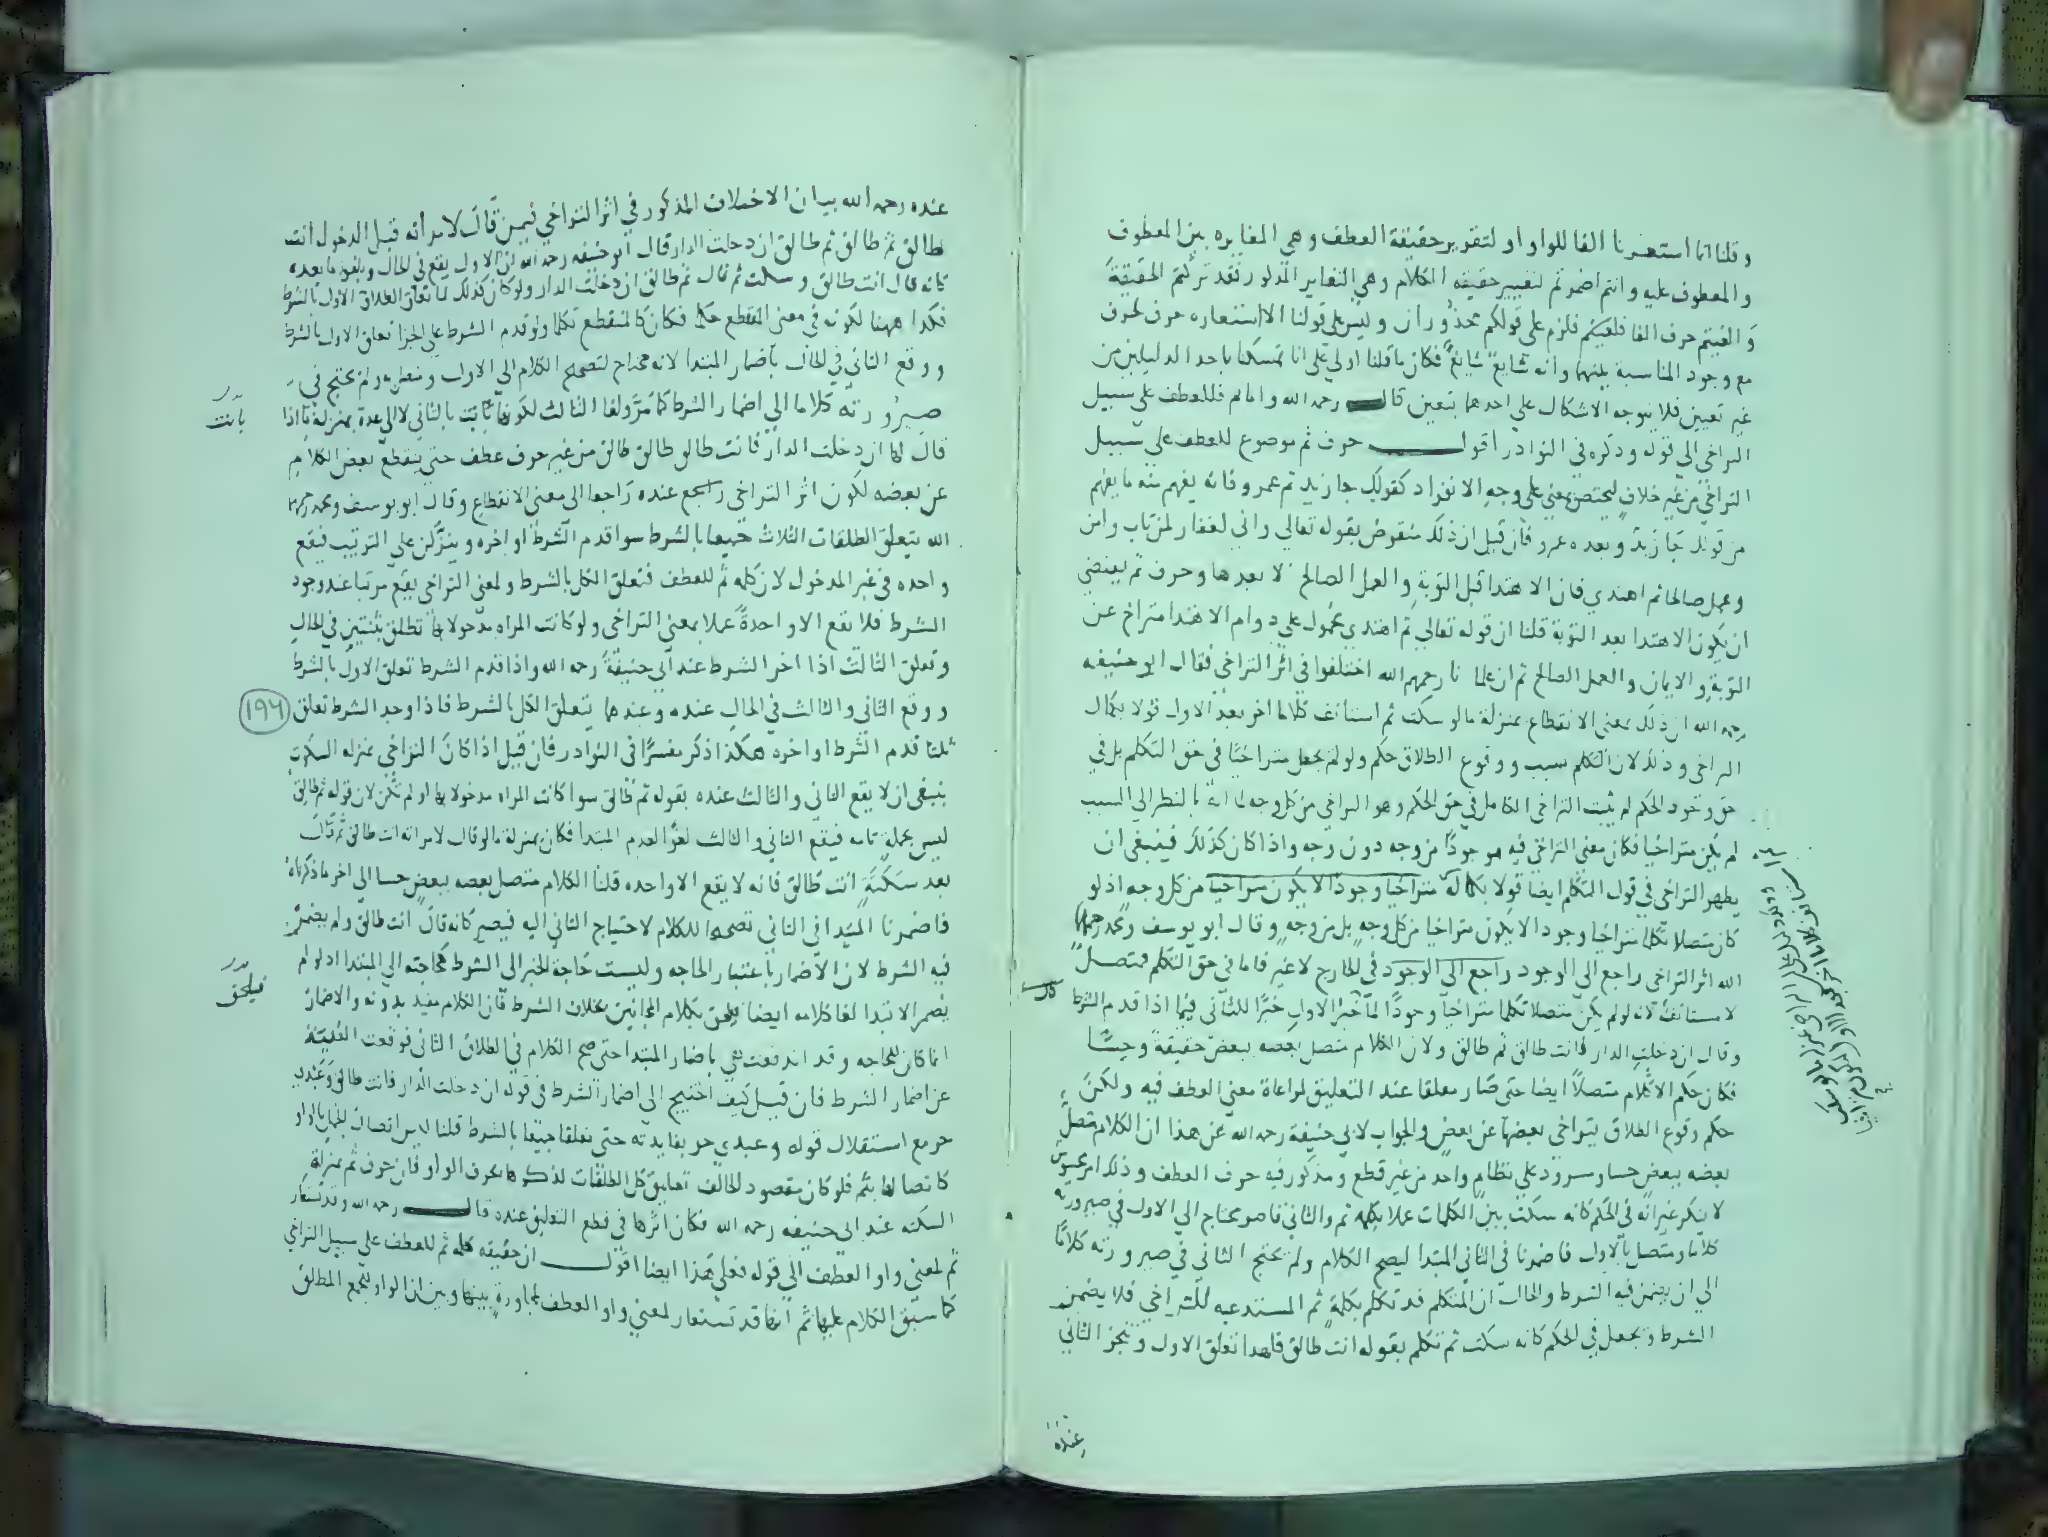 وقلنا انما استعرنا الفا للواو لتقرير حقيقة العطف وهي المغايره بين المعطوف
والمعطوف عليه وانتم اضمرتم لتغيير حقيقه الكلام وهي التغاير المذكور فقد تركتم الحقيقة
والغيتم حرف الفا فلزم على قولكم محذوران وليس على قولنا الا استعاره حرف لحرف
مع وجود المناسبة بينهما وانه شايع شايع فكان ما قلنا اولى على انا تمسكنا باحد الدليلين من
غير تعيين فلا يتوجه الاشكال على احدهما بتعين قال رحمه الله واما ثم فللعطف على سبيل
التراخي الى قوله وذكره في النوادر اقول حرف ثم موضوع للعطف على سبيل
التراخي من غير خلاف ليختص بمعنى على وجه الانفراد كقولك جا زيد ثم عمرو فانه يفهم منه ما يفهم
من قولك جا زيد وبعده عمرو فان قيل ان ذلك منقوض بقوله تعالى واني لغفار لمن تاب وامن
وعمل صالحا ثم اهتدي فان الاهتدا قبل التوبة والعمل الصالح لا بعدها وحرف ثم يقتضي
ان يكون الاهتدا بعد التوبة قلنا ان قوله تعالى ثم اهتدي محمول على دوام الاهتدا متراخ عن
التوبة والايمان والعمل الصالح ثم ان علما نا رحمهم الله اختلفوا في اثر التراخي فقال ابو حنيفه
رحمه الله ان ذلك بمعنى الانقطاع بمنزلة ما لو سكت ثم استانف كلاما اخر بعد الاول قولا بكمال
التراخي وذلك لان التكلم سبب ووقوع الطلاق حكم ولو لم يجعل متراخيا في حق التكلم بل في
حق وجود الحكم لم يثبت التراخي الكامل في حق الحكم وهو التراخي من كل وجه لانه بالنظر الى السبب
لم يكن متراخيا فكان معنى التراخي فيه موجودا من وجه دون وجه واذا كان كذلك فينبغي ان
يظهر التراخي في قول المتكلم ايضا قولا بكماله متراخيا وجودا لا يكون متراخيا من كل وجه اذ لو
كان متصلا تكلما متراخيا وجودا لا يكون متراخيا من كل وجه بل من وجه وقال ابو يوسف ومحمد رحمهما
الله اثر التراخي راجع الى الوجود راجع الى الوجود في الخارج لا غير فاما في حق التكلم فمتصل
لا مستانف لانه لو لم يكن متصلا تكلما متراخيا وجودا لما خبر الاول خبرا للثاني فيما اذا قدم الشرط
وقال ان دخلت الدار فانت طالق ثم طالق ولان الكلام متصل بعضه ببعض حقيقة وحسا
فكان حكم الكلام متصلا ايضا حتى صار معلقا عند التعليق لمراعاة معنى العطف فيه ولكن
حكم وقوع الطلاق يتراخى بعضها عن بعض والجواب لابي حنيفة رحمه الله عن هذا ان الكلام متصل
بعضه ببعض حسا ومسرود على نظام واحد من غير قطع ومذكور فيه حرف العطف وذلك امر محسوس
لا ينكر غير انه في الحكم كانه سكت بين الكلمات عملا بكلمة ثم والثاني ناقص محتاج الى الاول في صيرورته
كلاما ومتصل بالاول فاضمرنا في الثاني المبتدا ليصح الكلام ولم يحتج الثاني في صيرورته كلاما
الى ان يضمن فيه الشرط والحال ان المتكلم قد تكلم بكلمة ثم المستدعيه للتراخي فلا يضمن
الشرط ويجعل في الحكم كانه سكت ثم تكلم بقوله انت طالق فلهذا تعلق الاول ونجز الثاني
كان
عنده
عنده رحمه الله بيان الاختلاف المذكور في اثر التراخي فيمن قال لامراته قبل الدخول انت
طالق ثم طالق ثم طالق ان دخلت الدار قال ابو حنيفه رحمه الله ان الاول يقع في الحال ويلغو ما بعده
كانه قال انت طالق وسكت ثم قال ثم طالق ان دخلت الدار ولو كان كذلك لما تعلق الطلاق الاول بالشرط
فكذا ههنا لكونه في معنى المنقطع حكما فكان كالمنقطع تكلما ولو قدم الشرط على الجزا تعلق الاول بالشرط
ووقع الثاني في الحال باضمار المبتدا لانه محتاج لتصحيح الكلام الى الاول ولم يحتج في
صيرورته كلاما الى اضمار الشرط كما مر ولغا الثالث لكونها بانت بالثاني لا الى عدة بمنزلة ما اذا
بانت
قال لها ان دخلت الدار فانت طالق طالق طالق من غير حرف عطف حتى ينقطع بعض الكلام
عن بعضه لكون اثر التراخي راجع عنده راجعا الى معنى الانقطاع وقال ابو يوسف ومحمد رحمهما
الله يتعلق الطلقات الثلاث جميعا بالشرط سوا قدم الشرط او اخره وينزلن على الترتيب فيقع
واحده في غير المدخول لان كلمه ثم للعطف فتعلق الكل بالشرط ولمعنى التراخي يقع مرتبا عند وجود
الشرط فلا يقع الا واحدة عملا بمعنى التراخي ولو كانت المراه مدخولا بها تطلق ثنتين في الحال
وتعلق الثالث اذا اخر الشرط عند ابي حنيفة رحمه الله واذا قدم الشرط تعلق الاول بالشرط
ووقع الثاني والثالث في الحال عنده وعندهما يتعلق الكل بالشرط فاذا وجد الشرط تعلق
١٩٦
ثلثا قدم الشرط او اخره هكذا ذكر مفسرا في النوادر فان قيل اذا كان التراخي بمنزله السكوت
ينبغي ان لا يقع الثاني والثالث عنده بقوله ثم طالق سوا كانت المراه مدخولا بها او لم تكن لان قوله ثم طالق
ليس بجملة تامه فيقع الثاني والثالث لغوا لعدم المبتدا فكان بمنزلة ما لو قال لامراته انت طالق ثم قال
بعد سكتة انت طالق فانه لا يقع الا واحده قلنا الكلام متصل بعضه ببعض حسا الى اخر ما ذكرناه
فاضمرنا المبتدا في الثاني تصحيحا للكلام لاحتياج الثاني اليه فيصير كانه قال انت طالق ولم يضمر
فيه الشرط لان الاضمار باعتبار الحاجه وليست حاجة الخبر الى الشرط كحاجته الى المبتدا اذ لو لم
يضمر الابتدا لغا كلامه ايضا فيلحق بكلام المجانين بخلاف الشرط فان الكلام مفيد بدونه والاضمار
فيلحق
انما كان للحاجه وقد اندفعت هي باضمار المبتدا حتى صح الكلام في الطلاق الثاني فوقعت الغنية
عن اضمار الشرط فان قيل كيف احتيج الى اضمار الشرط في قوله ان دخلت الدار فانت طالق وعبدي
حر مع استقلال قوله وعبدي حر بفايدته حتى تعلقا جميعا بالشرط قلنا ليس اتصال الجمل بالواو
كاتصالها بثم فلو كان مقصود الحالف تعليق كل الطلقات لذكرها بحرف الواو فان حرف ثم بمنزلة
السكته عند ابي حنيفه رحمه الله فكان اثرها في قطع التعليق عنده قال رحمه الله وقد تستعار
ثم لمعنى واو العطف الى قوله فعلى هذا ايضا اقول ان حقيقه كلمه ثم للعطف على سبيل التراخي
كما سبق الكلام عليها ثم انها قد تستعار لمعنى واو العطف لمجاورة بينهما وبين ان الواو لجمع المطلق